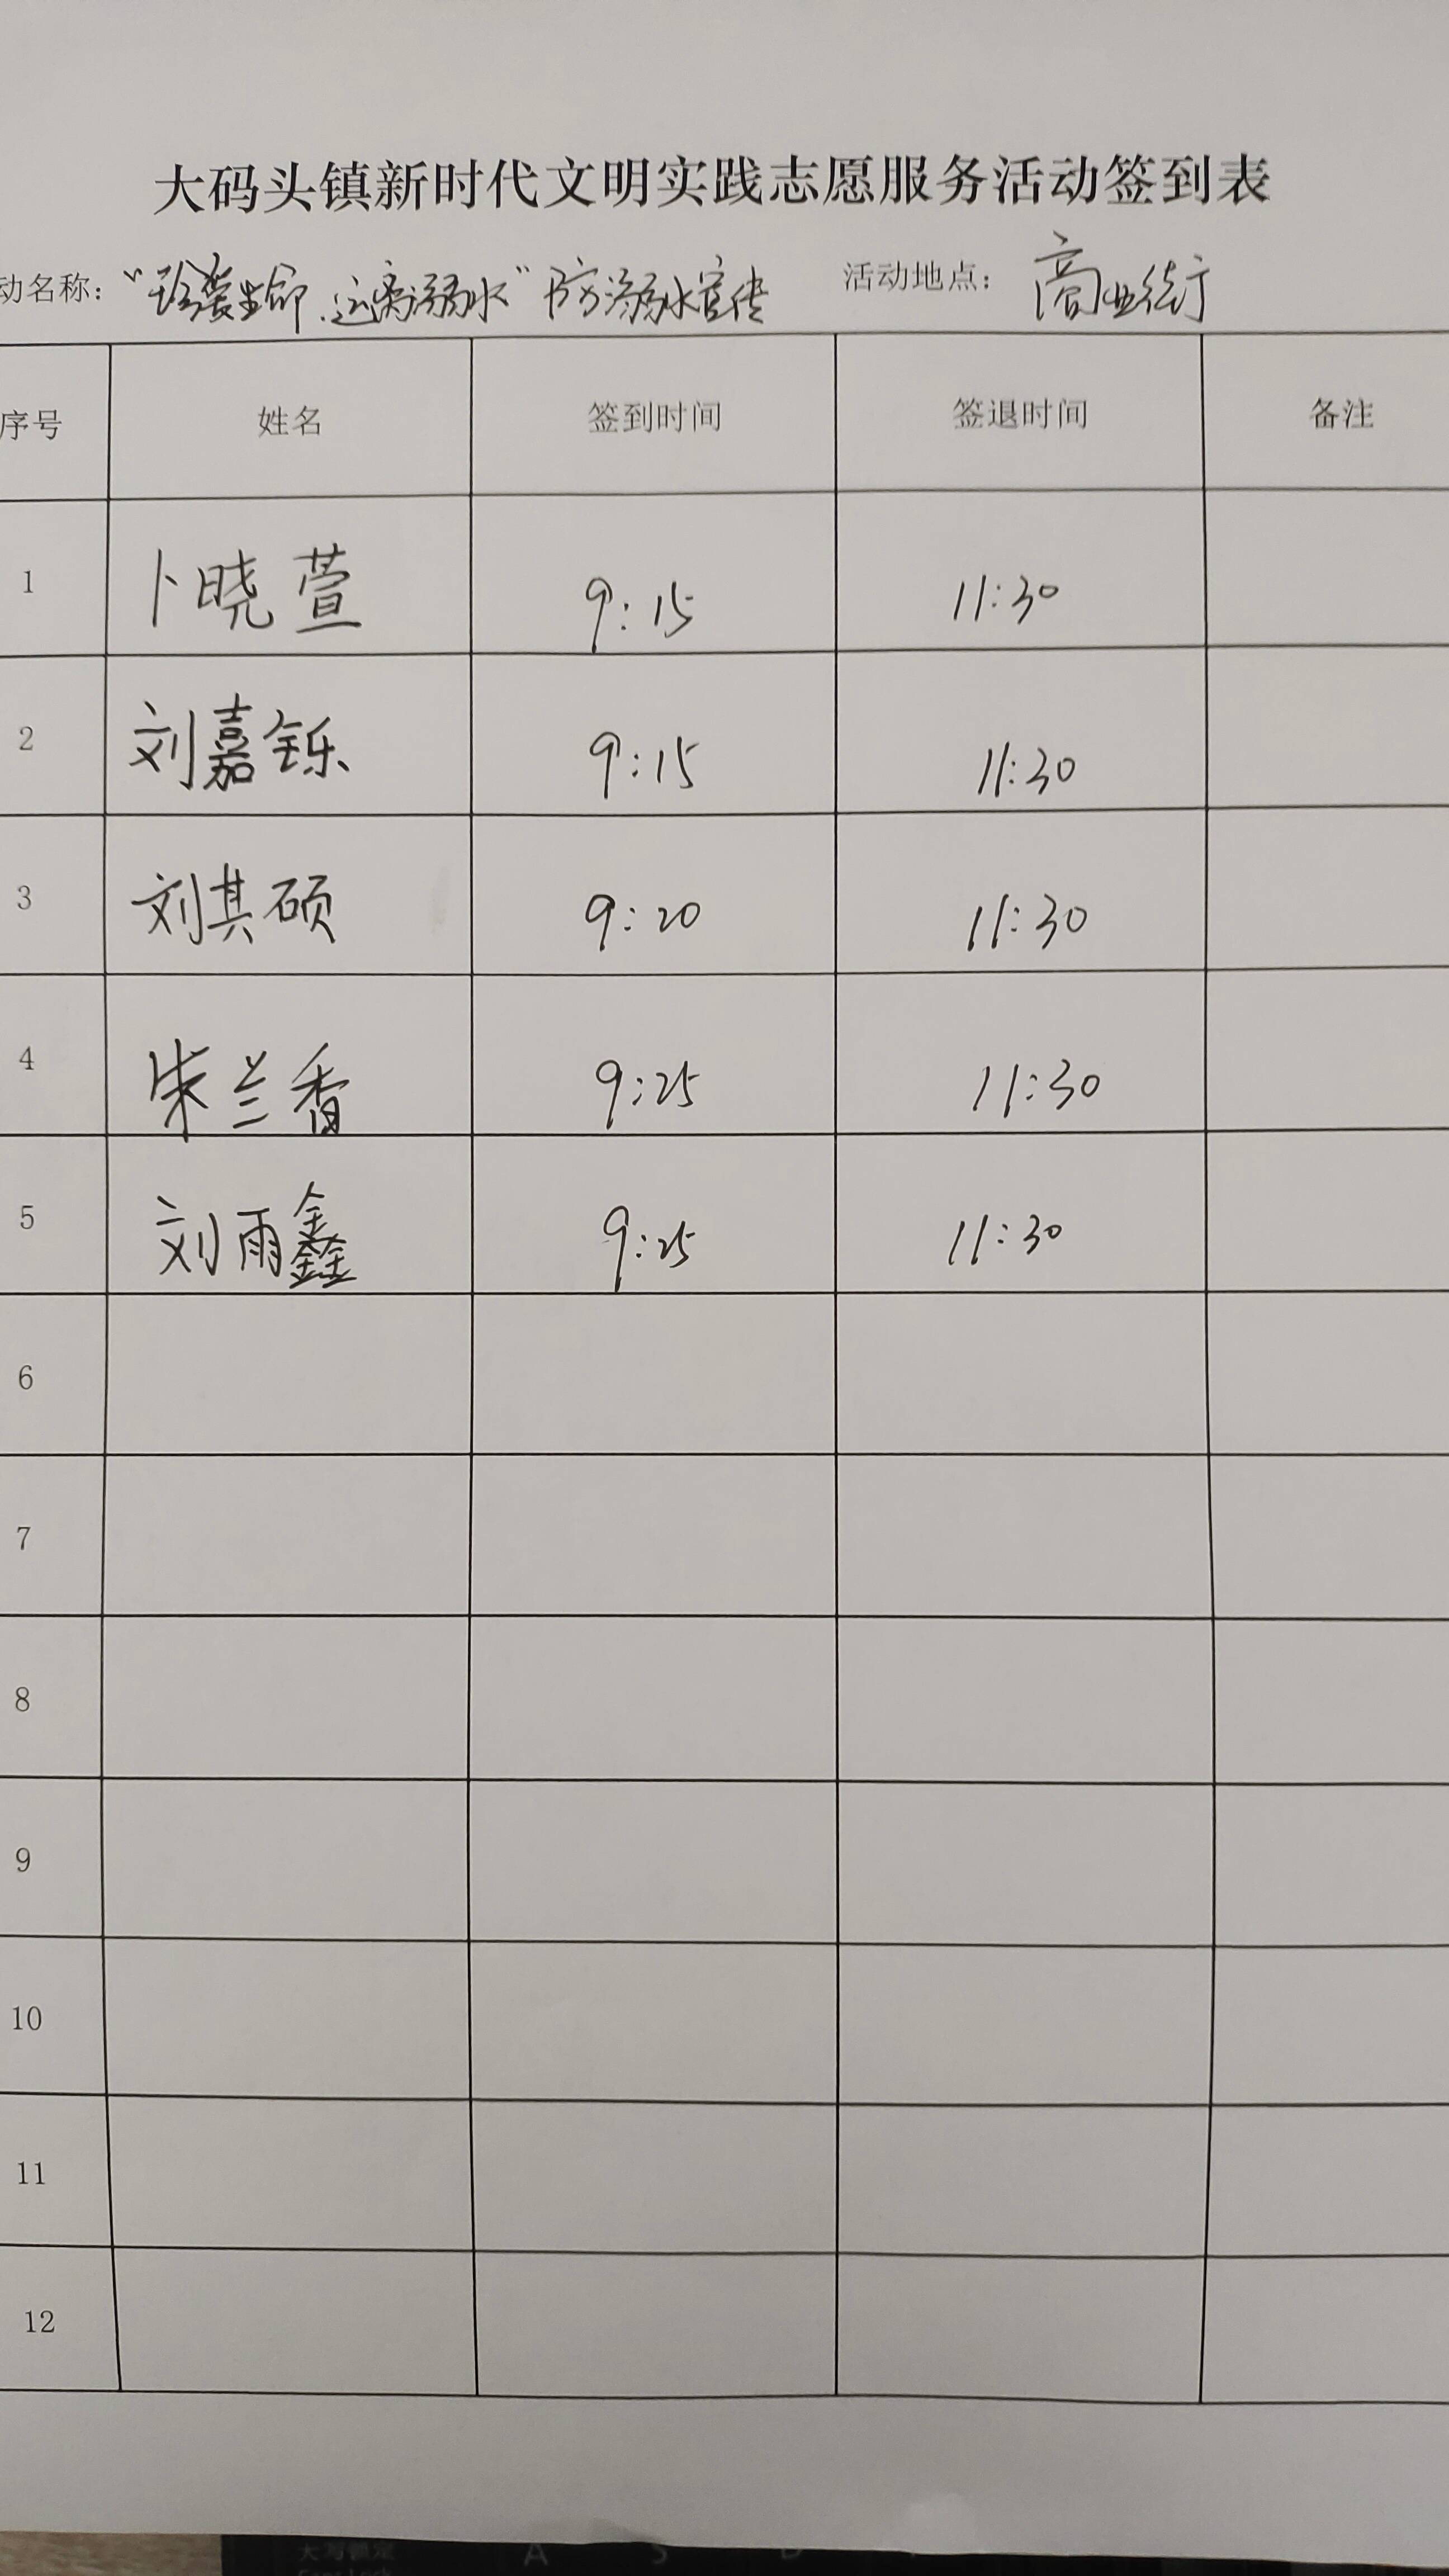 大码头镇新时代文明实践志愿服务活动签到表
动名称：“珍爱生命.远离溺水”防溺水宣传 活动地点：商业街
序号 姓名 签到时间 签退时间 备注
1 卜晓萱 9:15 11:30
2 刘嘉铄 9:15 11:30
3 刘其硕 9:20 11:30
4 朱兰香 9:25 11:30
5 刘雨鑫 9:25 11:30
6
7
8
9
10
11
12
大写锁定 A S D
Caps Lock